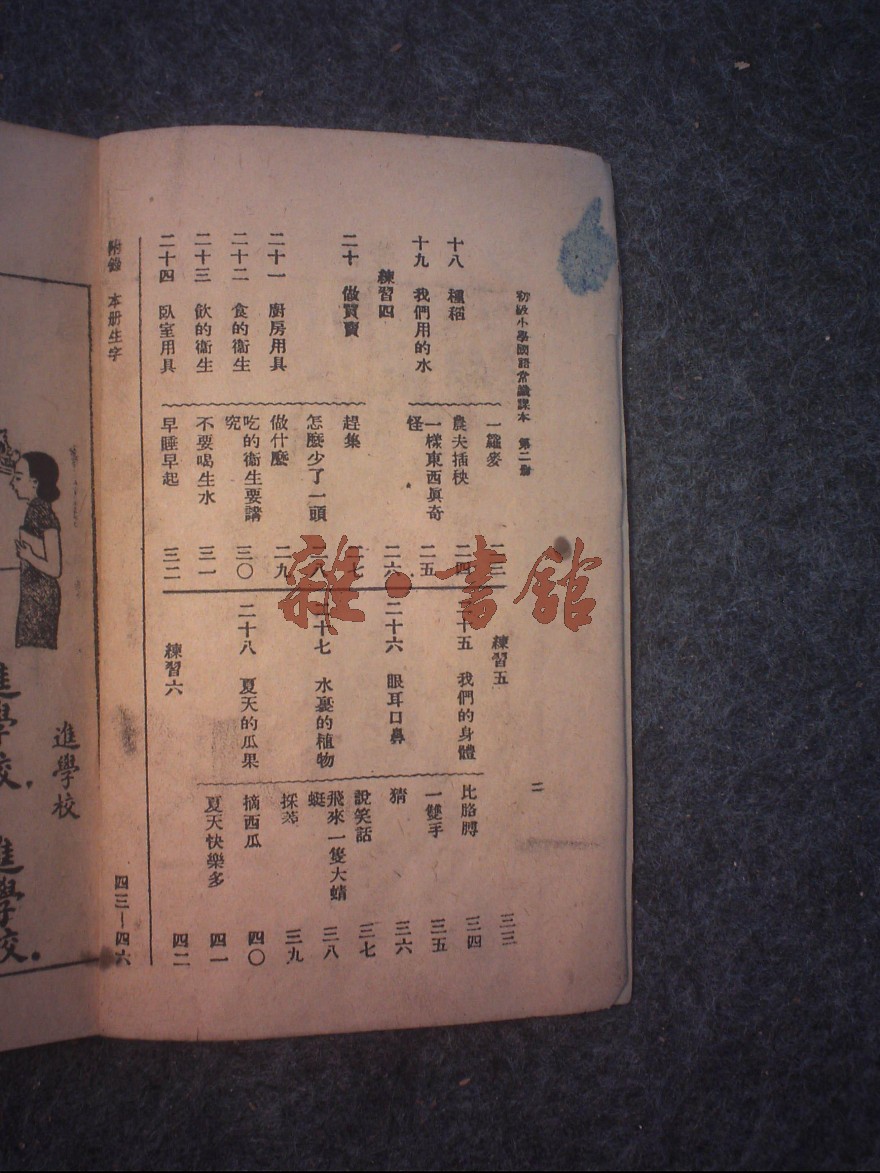 初級小學國語常識課本 第二册
二
一籮麥 二三
十八 種稻 農夫插秧 二四
十九 我們用的水 一樣東西眞奇怪 二五
練習四 二六
二十 做買賣 趕集 二七
怎麼少了一頭 二八
二十一 廚房用具 做什麼 二九
二十二 食的衞生 吃的衞生要講究 三〇
二十三 飲的衞生 不要喝生水 三一
二十四 臥室用具 早睡早起 三二
練習五 三三
二十五 我們的身體 比胳膊 三四
一雙手 三五
二十六 眼耳口鼻 猜 三六
說笑話 三七
二十七 水裏的植物 飛來一隻大蜻蜓 三八
採菱 三九
二十八 夏天的瓜果 摘西瓜 四〇
夏天快樂多 四一
練習六 四二
附錄 本册生字 四三—四六
進學校
進學校，進學校。
雜·書館